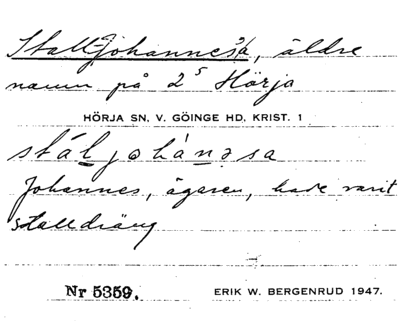 Stall-Johannes a, äldre
namn på 2⁵ Hörja
HÖRJA SN. V. GÖINGE HD. KRIST. 1
stál johánəsa
Johannes, ägaren, hade varit
stalldräng
Nr 5359.
ERIK W. BERGENRUD 1947.